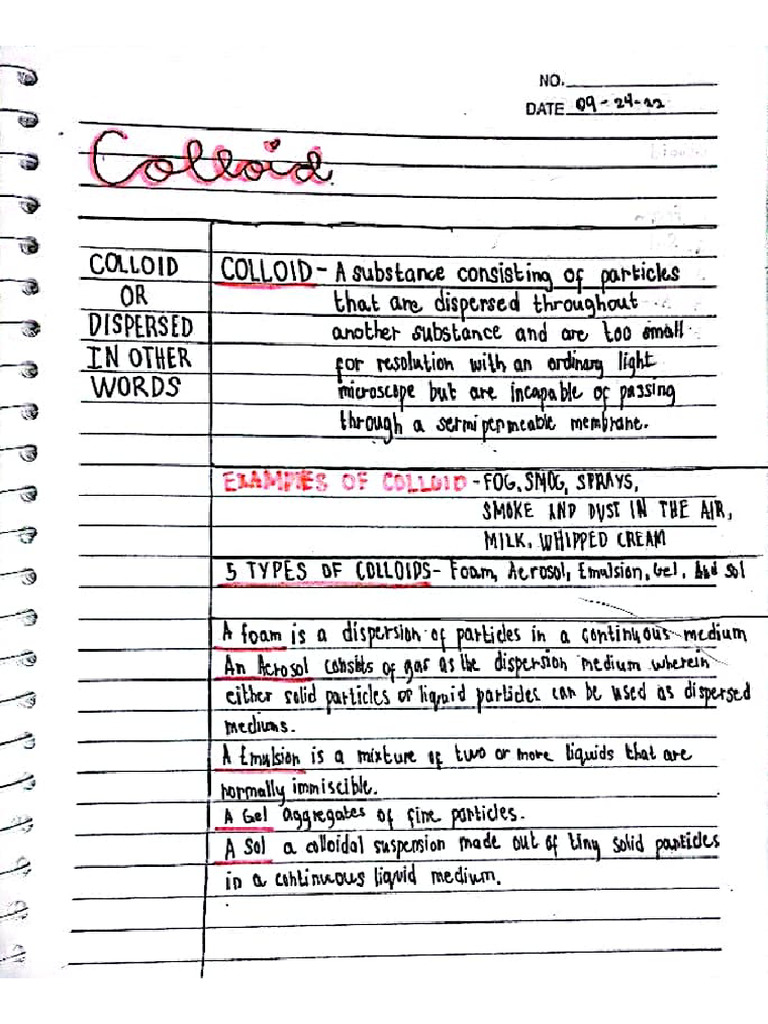 NO.
DATE 09-24-22
Colloid
COLLOID
OR
DISPERSED
IN OTHER
WORDS
COLLOID - A substance consisting of particles
that are dispersed throughout
another substance and are too small
for resolution with an ordinary light
microscope but are incapable of passing
through a semipermeable membrane.
EXAMPLES OF COLLOID - FOG, SMOG, SPRAYS,
SMOKE AND DUST IN THE AIR,
MILK, WHIPPED CREAM
5 TYPES OF COLLOIDS - Foam, Aerosol, Emulsion, Gel, And Sol
A foam is a dispersion of particles in a continuous medium
An Aerosol consists of gas as the dispersion medium wherein
either solid particles or liquid particles can be used as dispersed
mediums.
A Emulsion is a mixture of two or more liquids that are
normally immiscible.
A Gel aggregates of fine particles.
A Sol a colloidal suspension made out of tiny solid particles
in a continuous liquid medium.